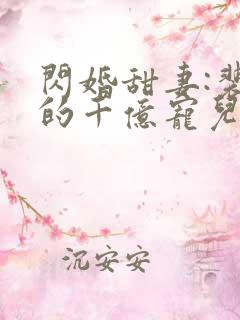 閃婚甜妻:
的千億寵兒
沉安安